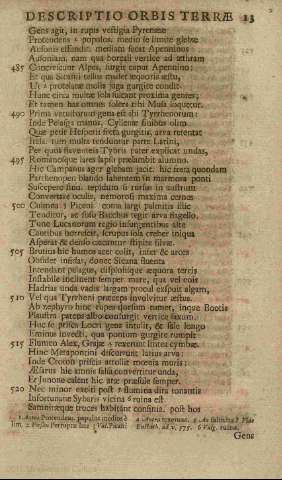 DESCRIPTIO ORBIS TERRÆ 13
Gens agit, in rupis vestigia Pyrenææ
Protendens populos. medio se limite glebæ
Ausonis effundit. mediam secat Apenninus
Ausoniam. nam qua boreali vertice ad æthram
485 Concrevere Alpes, surgit caput Apennino:
Et qua Sicanii tellus mulcet æquoris æstu,
protelatæ molis juga gurgite condit.
Hanc circa multæ sola fuscant proxima gentes,
Et tamen has omnes solers tibi Musa loquetur.
490 Prima vetustorum gens est ibi Tyrrhenorum:
Inde Pelasga manus, Cyllenæ finibus olim
Quæ petit Hesperii freta gurgitis, arva retentat
tum multa tenduntur parte Latini,
Per quos flaventeis Tybris pater explicat undas,
495 Romanosque lares lapsu prælambit alumno.
Hic Campanus ager glebam jacit: hic freta quondam
Parthenopen blando labentem in marmora ponti
Suscepere sinu. tepidum si rursus in austrum
Convertare oculos, nemorosi maxima cernes
500 Culmina Piceni coma largi palmitis illic
Tenditur, ac fuso Bacchus tegit arva flagello.
Tene Lucanorum regio insurgentibus alte
Cautibus horrescit, scrupus sola creber iniqua
Asperat & denso cæcantur stipite silvæ.
505 Brutius hic humos acer colit, inter & arces
Obsidet infidas, donec Sicana fluenta
Incendant pelagus, displosique æquora terris
Instabile inclinent semper mare, qua vel eois
Hadria unda vadis largam procul exspuit algam,
510 Vel qua Tyrrheni præceps involvitur æstus.
Ab zephyro hinc rupes dorsum tumet, inque Bootis
Plaustra patens albo consurgit vertice saxum:
Hac se prisca Locri gens intulit, & sale longo
Eminus invecti, qua pontum gurgite rumpit
515 Flumeo Alex, Grajæ rexerunt lintea cymbæ.
Hinc Metapontini discurrunt latius arva:
Inde Croton priscis attollit mœnia muris:
Æsarus hic amnis sala convertitur unda,
Et Junonis calent hic aræ præsule semper.
520 Nec minor erecti post flumina dira tonantis
Infortunatæ Sybaris vicina ruina est
Samniteque truces habitant continua. post hos
Gens